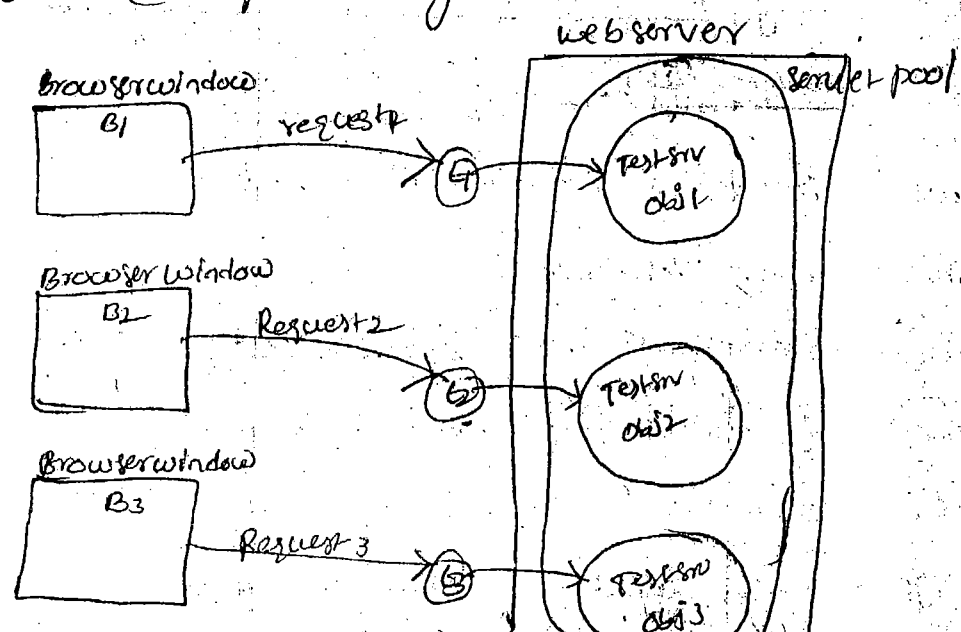 webserver
servlet pool
Browserwindow
B1
request1
t1
TestSrv
obj1
Browser Window
B2
Request2
t2
TestSrv
obj2
Browserwindow
B3
Request 3
t3
TestSrv
obj3